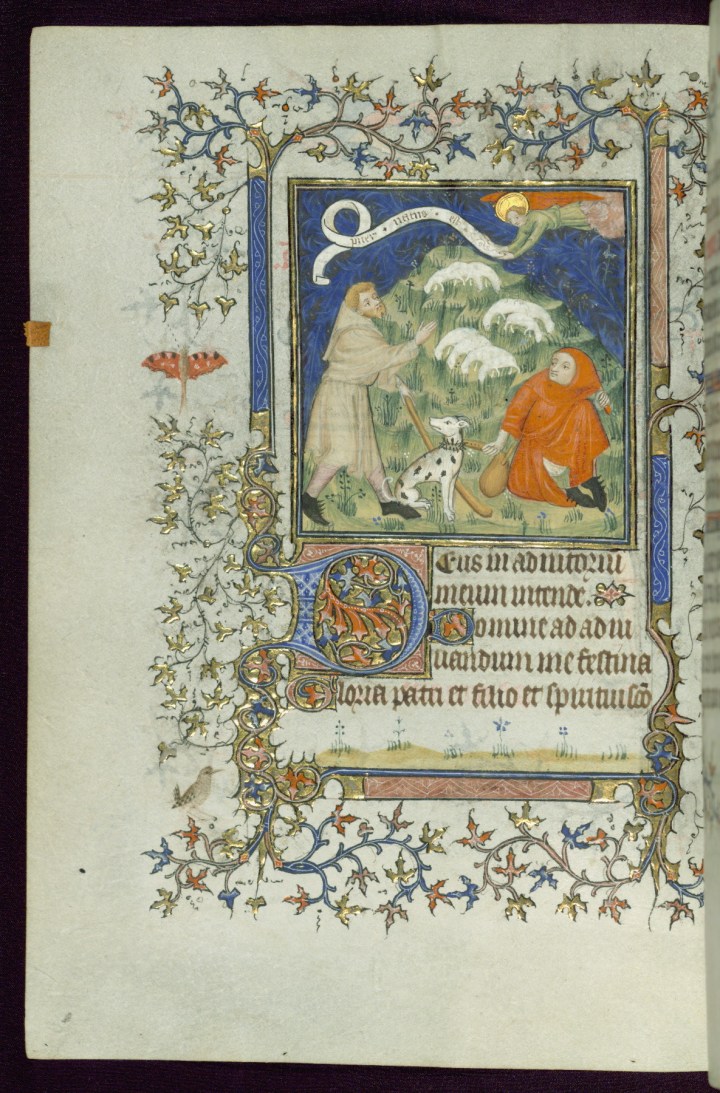 puer natus est
Deus in adiutoriu
meum intende.
Domine ad adiu
uandum me festina
Gloria patri et filio et spiritui sco